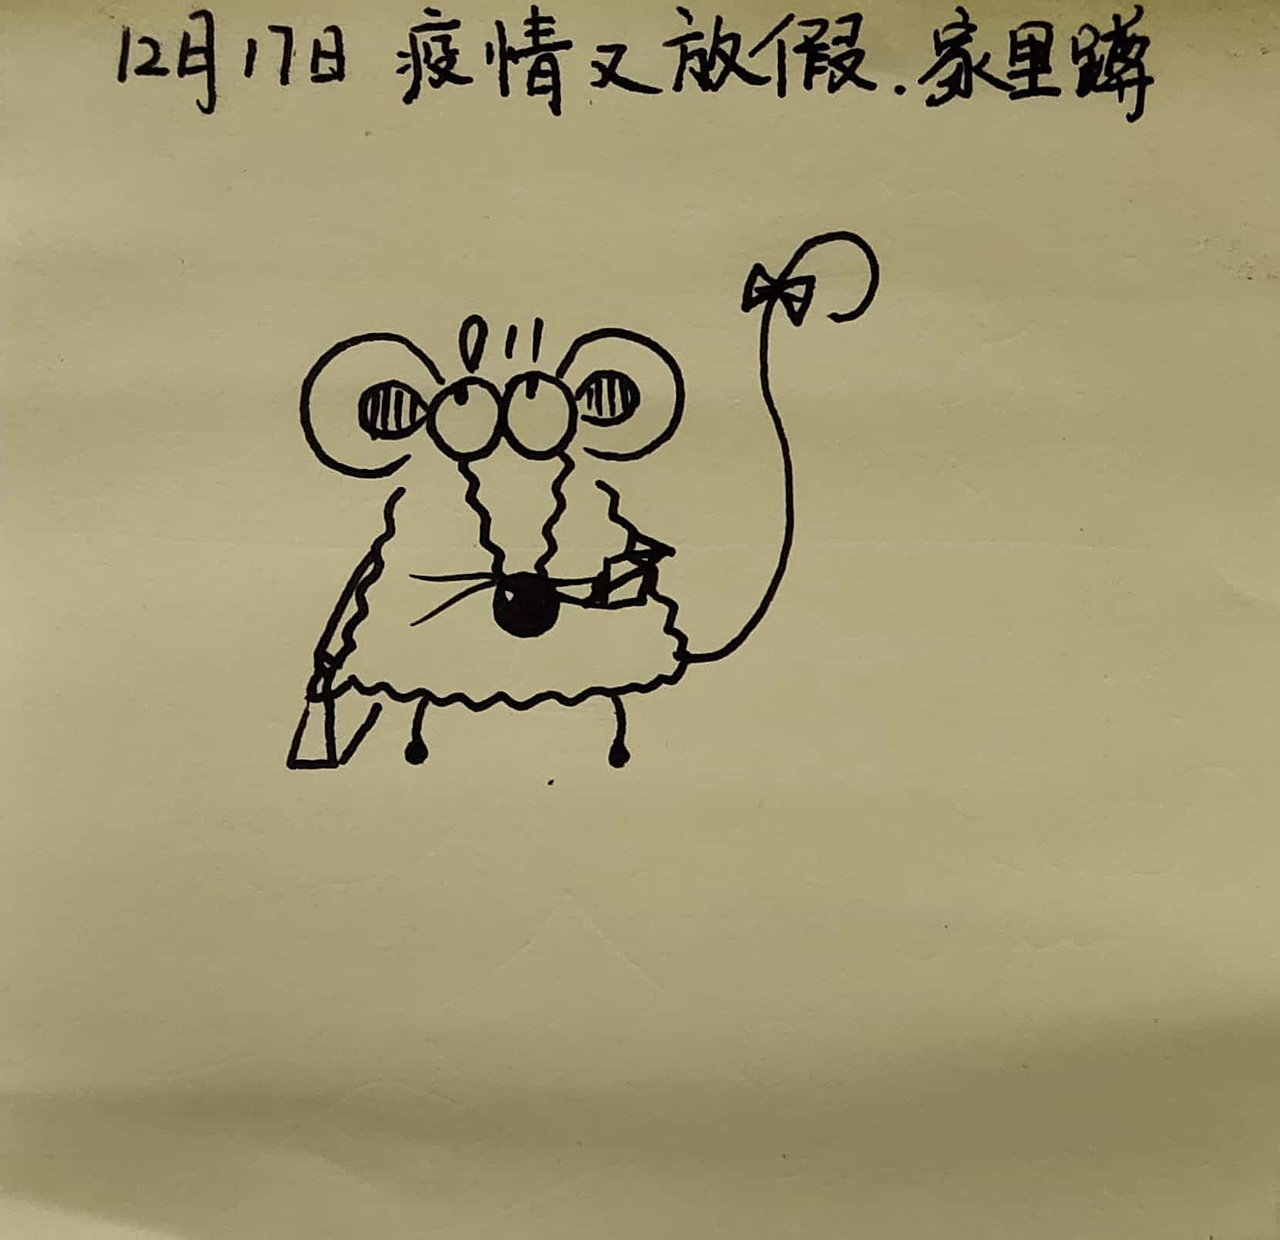 12月17日 疫情又放假.家里蹲